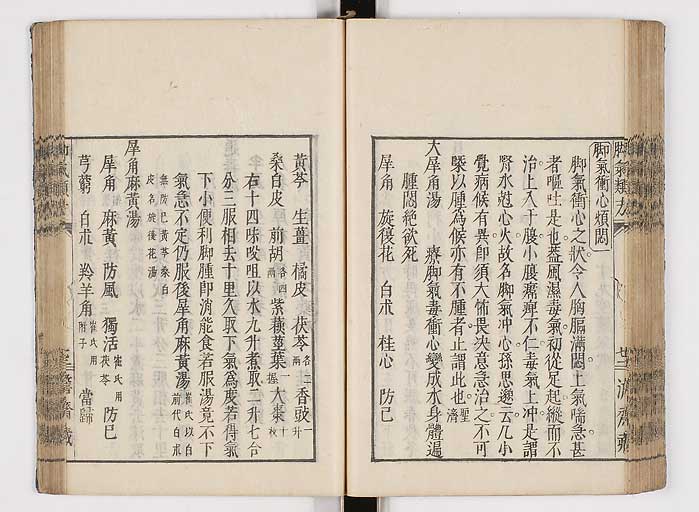 脚氣衝心煩悶一
脚氣衝心之狀令人胸膈滿悶上氣喘急甚
者嘔吐是也蓋風濕毒氣初從足起縱而不
治上入于腹小腹㿏痺不仁毒氣上冲是謂
腎水剋心火故名脚氣冲心孫思邈云凡小
覺病候有異即須大怖畏決意急治之不可
槩以腫為候亦有不腫者止謂此也聖濟
大犀角湯　療脚氣毒衝心變成水身體遍
腫悶絶欲死
犀角　旋復花　白朮　桂心　防已
黃芩　生薑　橘皮　茯苓各二兩　香豉一升
桑白皮　前胡各四兩　紫蘓莖葉一握　大棗十枚
右十四味㕮咀以水九升煮取二升七合
分三服相去十里久取下氣為度若得氣
下小便利脚腫即消能食若服湯竟不下
氣急不定仍服後犀角麻黃湯崔氏以白前代白朮
無防已黃芩桑白皮名旋復花湯
犀角麻黃湯
犀角　麻黃　防風　獨活崔氏用茯苓　防已
芎藭　白朮　羚羊角崔氏用附子　當歸
脚氣類方